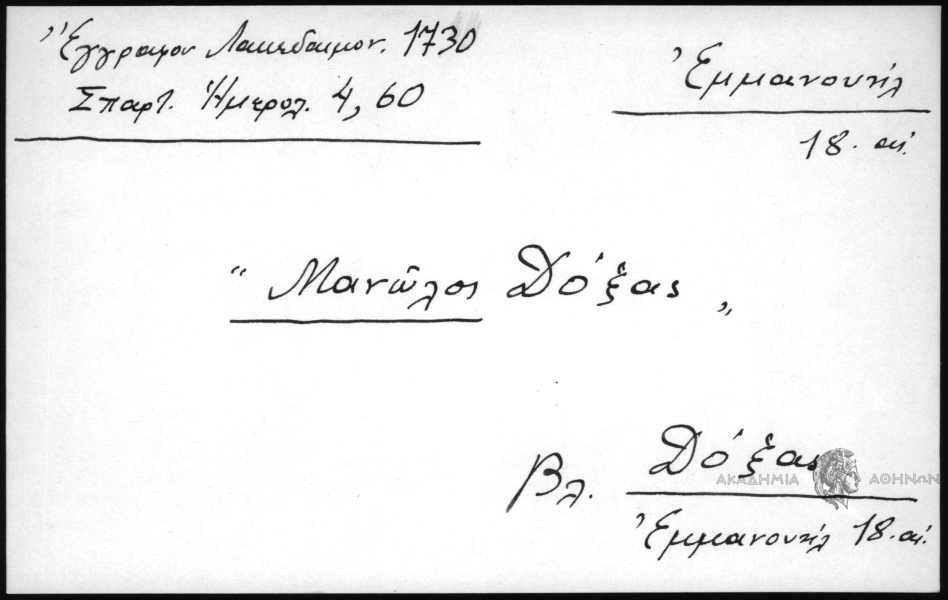 Ἔγγραφον Λακεδαιμον. 1730
Σπαρτ. Ἡμερολ. 4, 60
Ἐμμανουήλ
18. αἰ.
“ Μανῶλος Δόξας „
Βλ. Δόξας
ΑΚΑΔΗΜΙΑ ΑΘΗΝΩΝ
Ἐμμανουήλ 18. αἰ.